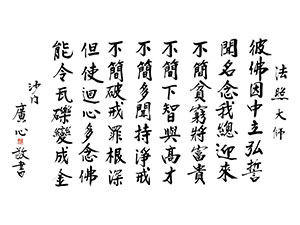 法照大師
彼佛因中立弘誓
聞名念我總迎來
不簡貧窮將富貴
不簡下智與高才
不簡多聞持淨戒
不簡破戒罪根深
但使迴心多念佛
能令瓦礫變成金
沙門
廣心敬書